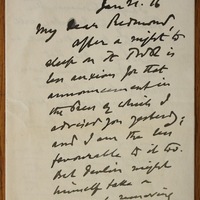 Jan 21. 16
My dear Redmond,
After a night to
sleep on it I
less anxious for that
announcement in
the Press of which I
advised you yesterday;
and I am the less
favourable to it too.
But Devlin might
himself take a
removing